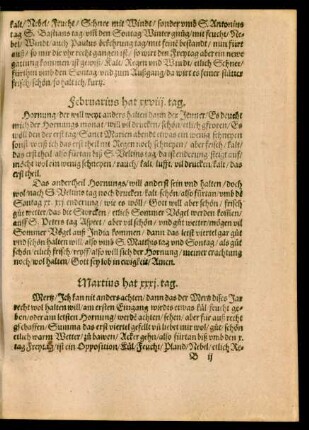 kalt/ Nebel/ Feucht/ Schnee mit Windt/ sonder umb S. Antonius
tag S. Bastians tag/ wil den Sontag Winterig sein/ mit feucht/ Ne-
bel/ Windt/ auch Paulus bekehrung tag/ mit seine bestandt/ nun fürt
auß/ so mir die vhr recht gangen ist/ so wirt den Freytag aber ein newe
gattung kommen ist gewiß/ Kalt/ Regen und Windt/ etlich Schnee/
fürthin umb den Sontag und zum Außgang/ da wirt es seiner stätter
frisch/ schön/ so halt ich/ kurtz.
Februarius hat xxviij. tag.
Hornung/ der will weyt anders halten dann der Jenner/ Es deucht
mich der Hornungs monat/ will viel drucken/ schön/ etlich gfroren/ Es
well den der erst tag Sanct Marien abendt etwas ein wenig schneyen
sonst weiß ich das erst theil mit Regen noch schneyen/ aber frisch/ kalt/
das erst theil also fürtan biß S. Veltins tag da ist enderung, steigt auff/
möcht wol ein wenig schneyen/ rauch/ kalt lufft/ vil drucken kalt/ das
erst theil.
Das ander theil Hornungs/ will anderst sein und halten/ doch
wol nach S. Velins tag noch drucken/ kalt/ schön/ also fürtan umb de
Sontag xx. xxj enderung/ wie es wöll/ Gott will aber schön/ frisch
gut wetter/ das der Storcken/ etlich Sommer Vögel werden kommen/
auff S. Peters tag Aspect/ aber vil schön/ und gut wetter/ mögen vil
Sommer Vögel auß India kommen/ dann das letst viertel gar gut
und schön halten will/ also umb S. Matthis tag und Sontag/ als gut
schön/ etlich frisch/ reyff/ also schön will sich der Hornung/ meiner erachtung
noch wol halten/ Gott sey lob in ewigkeit/ Amen.
Martius hat xxxj. tag.
Mertz/ Ich kan nit anders achten/ dann das der Mertz dises Jar
recht wol halten will/ am ersten Eingang würdts etwas kül feucht ge-
ben/ oder am letsten Hornung/ werde achten/ sehen/ aber für auß recht
gschaffen/ Summa das erst viertel gefelt vn liebet mir wol/ gut/ schön
etlich warm Wetter/ zu bawen/ Acker gehn/ also fürtan biß und den x.
tag Freytag/ ist ein Opposition/ Kül/ Feucht/ Wind/ Nebel/ etlich Re-
B ij